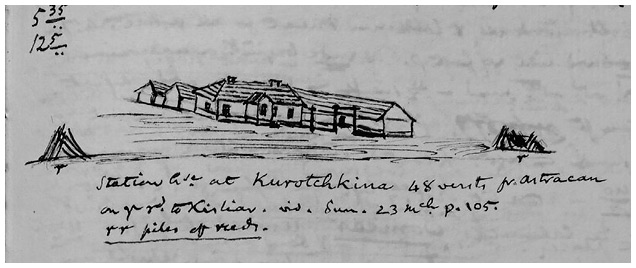 5 35
12 5
r r
Station hse at Kurotchkina 48 versts fr. Astracan
on gr rd. to Kisliar. vid. Sun. 23 mch p. 105.
rr piles of reeds.